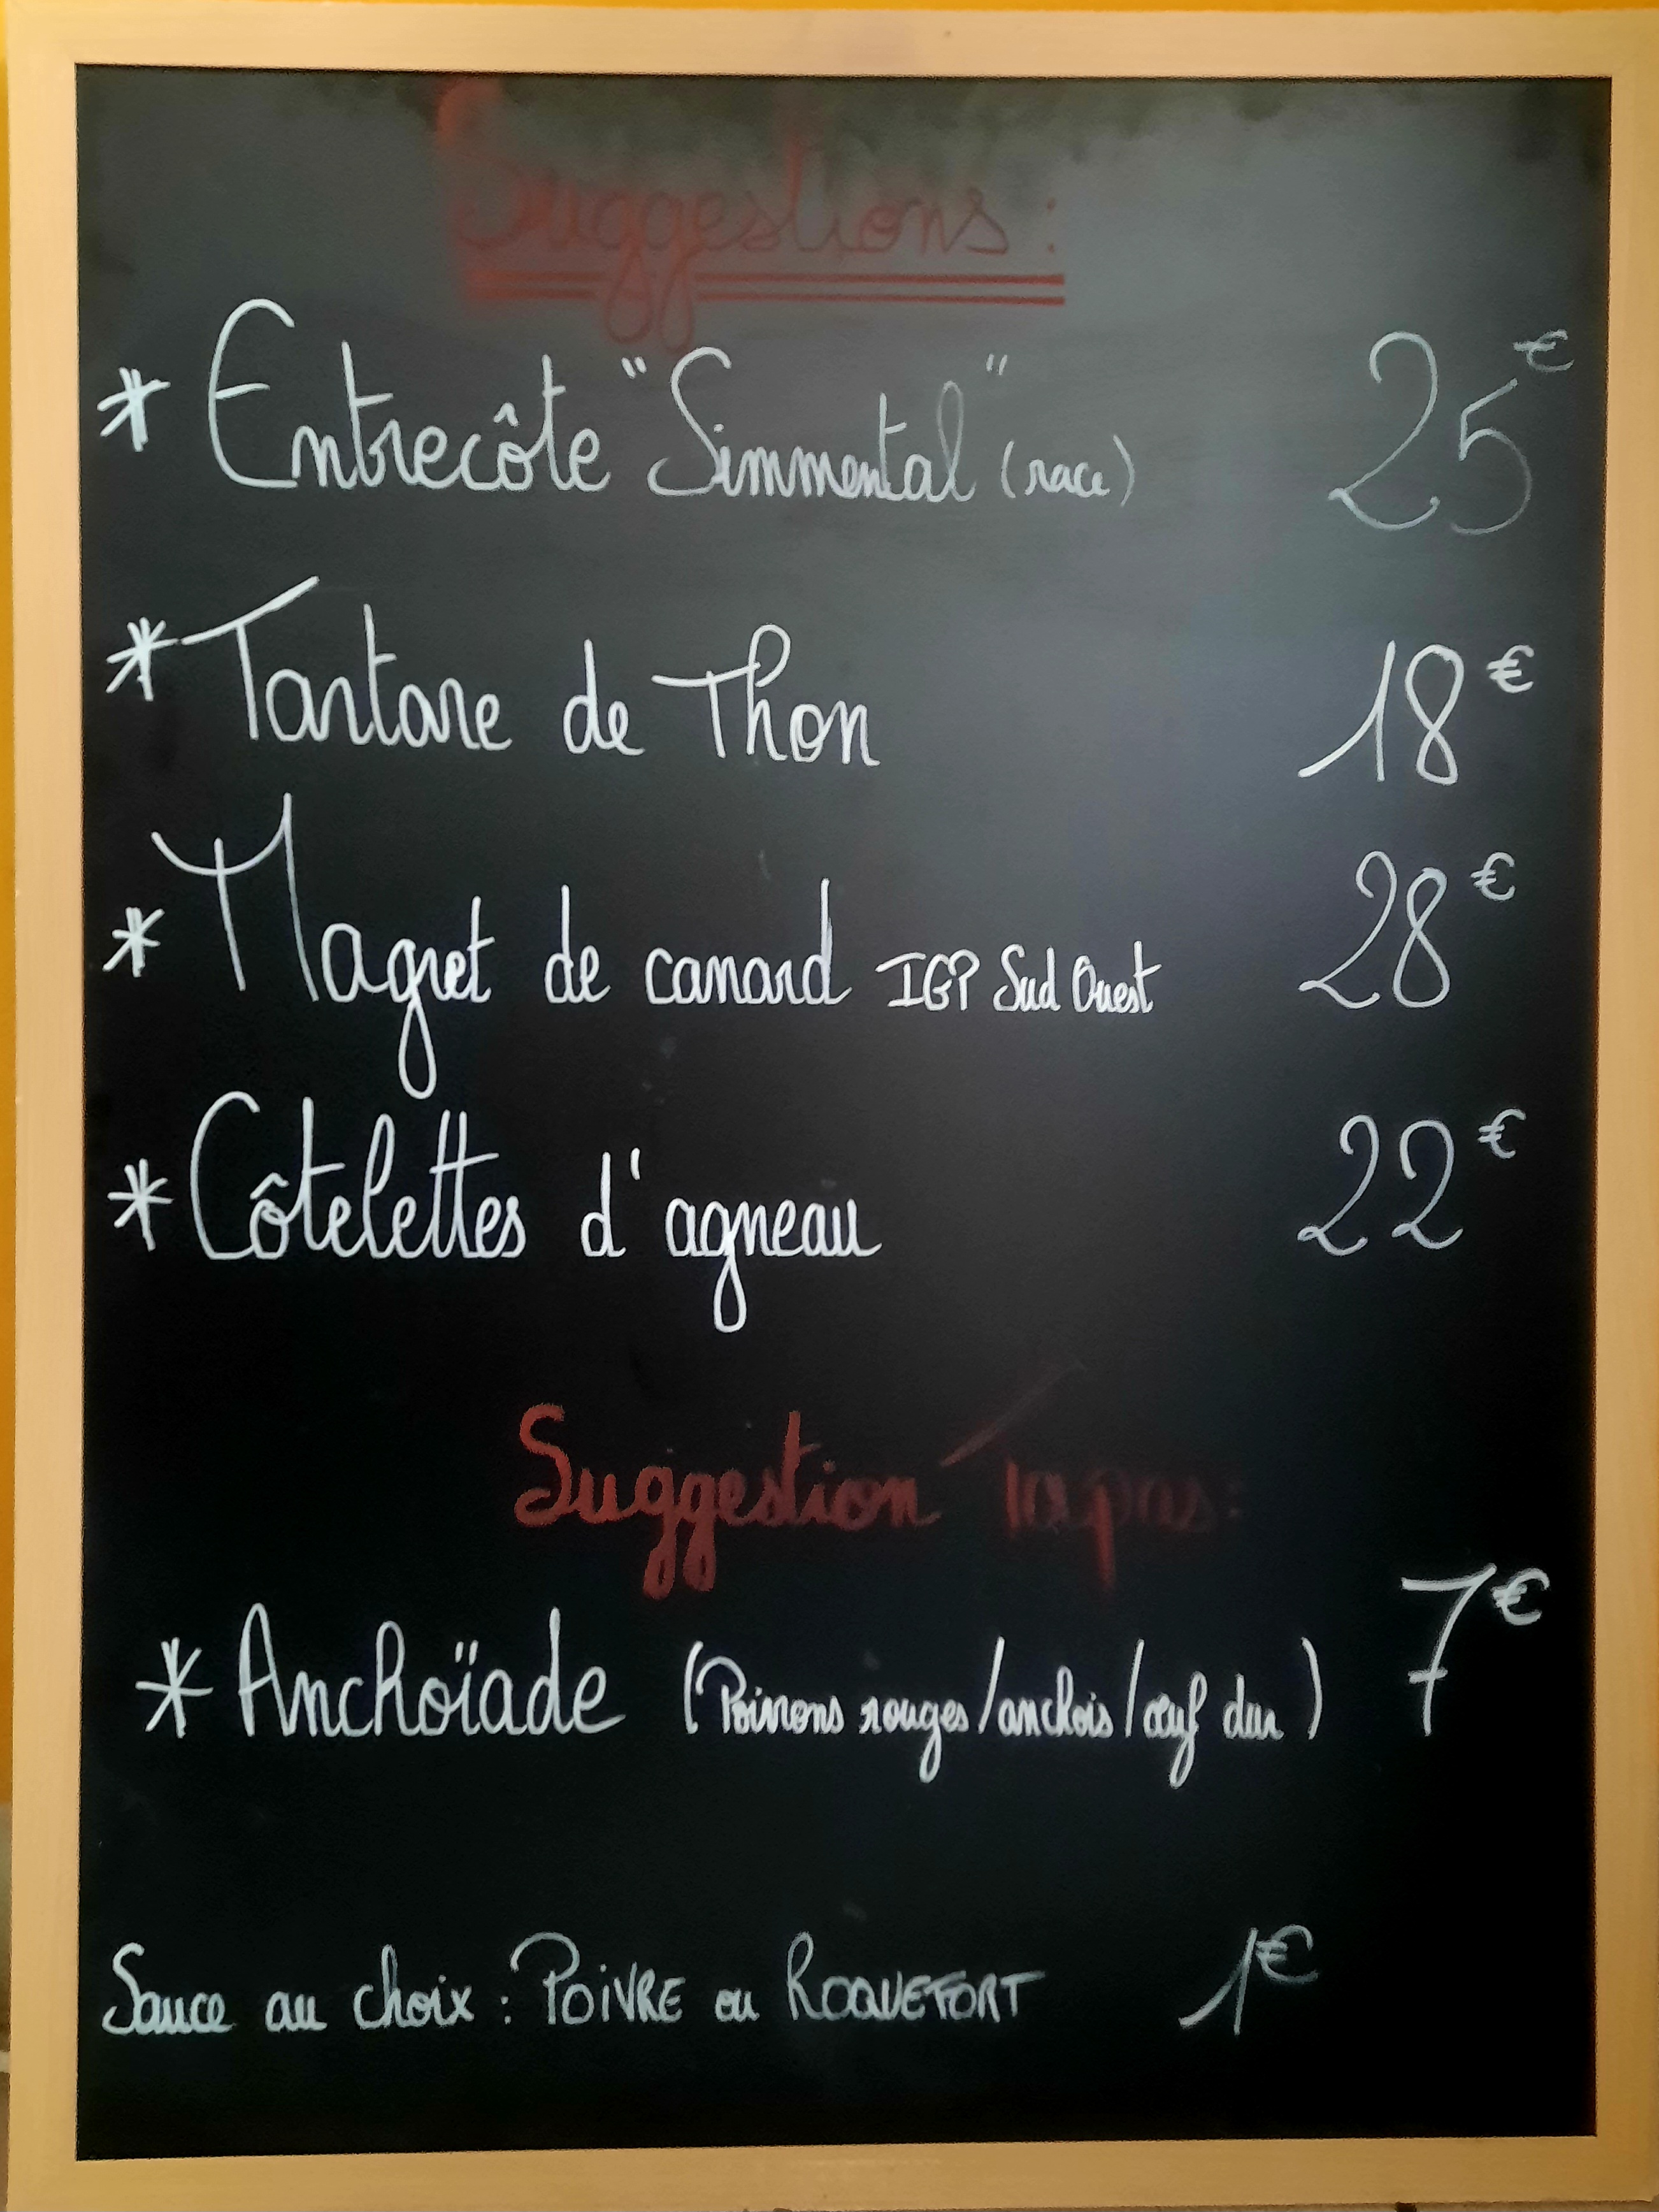 Suggestions :
* Entrecôte "Simmental" (race) 25€
* Tartare de Thon 18€
* Magret de canard IGP Sud Ouest 28€
* Côtelettes d'agneau 22€
Suggestion Tapas :
* Anchoïade (Poivrons rouges/anchois/œuf dur) 7€
Sauce au choix : POIVRE ou ROQUEFORT 1€